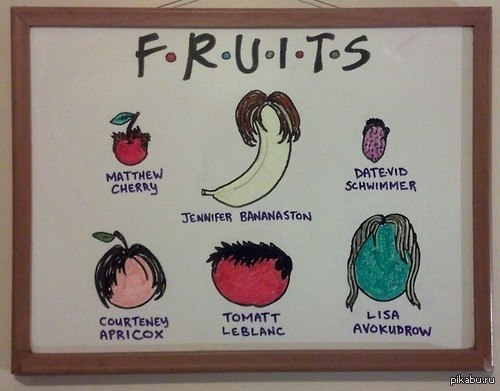 F•R•U•I•T•S
MATTHEW
CHERRY
JENNIFER BANANASTON
DATE•VID
SCHWIMMER
COURTENEY
APRICOX
TOMATT
LEBLANC
LISA
AVOKUDROW
pikabu.ru